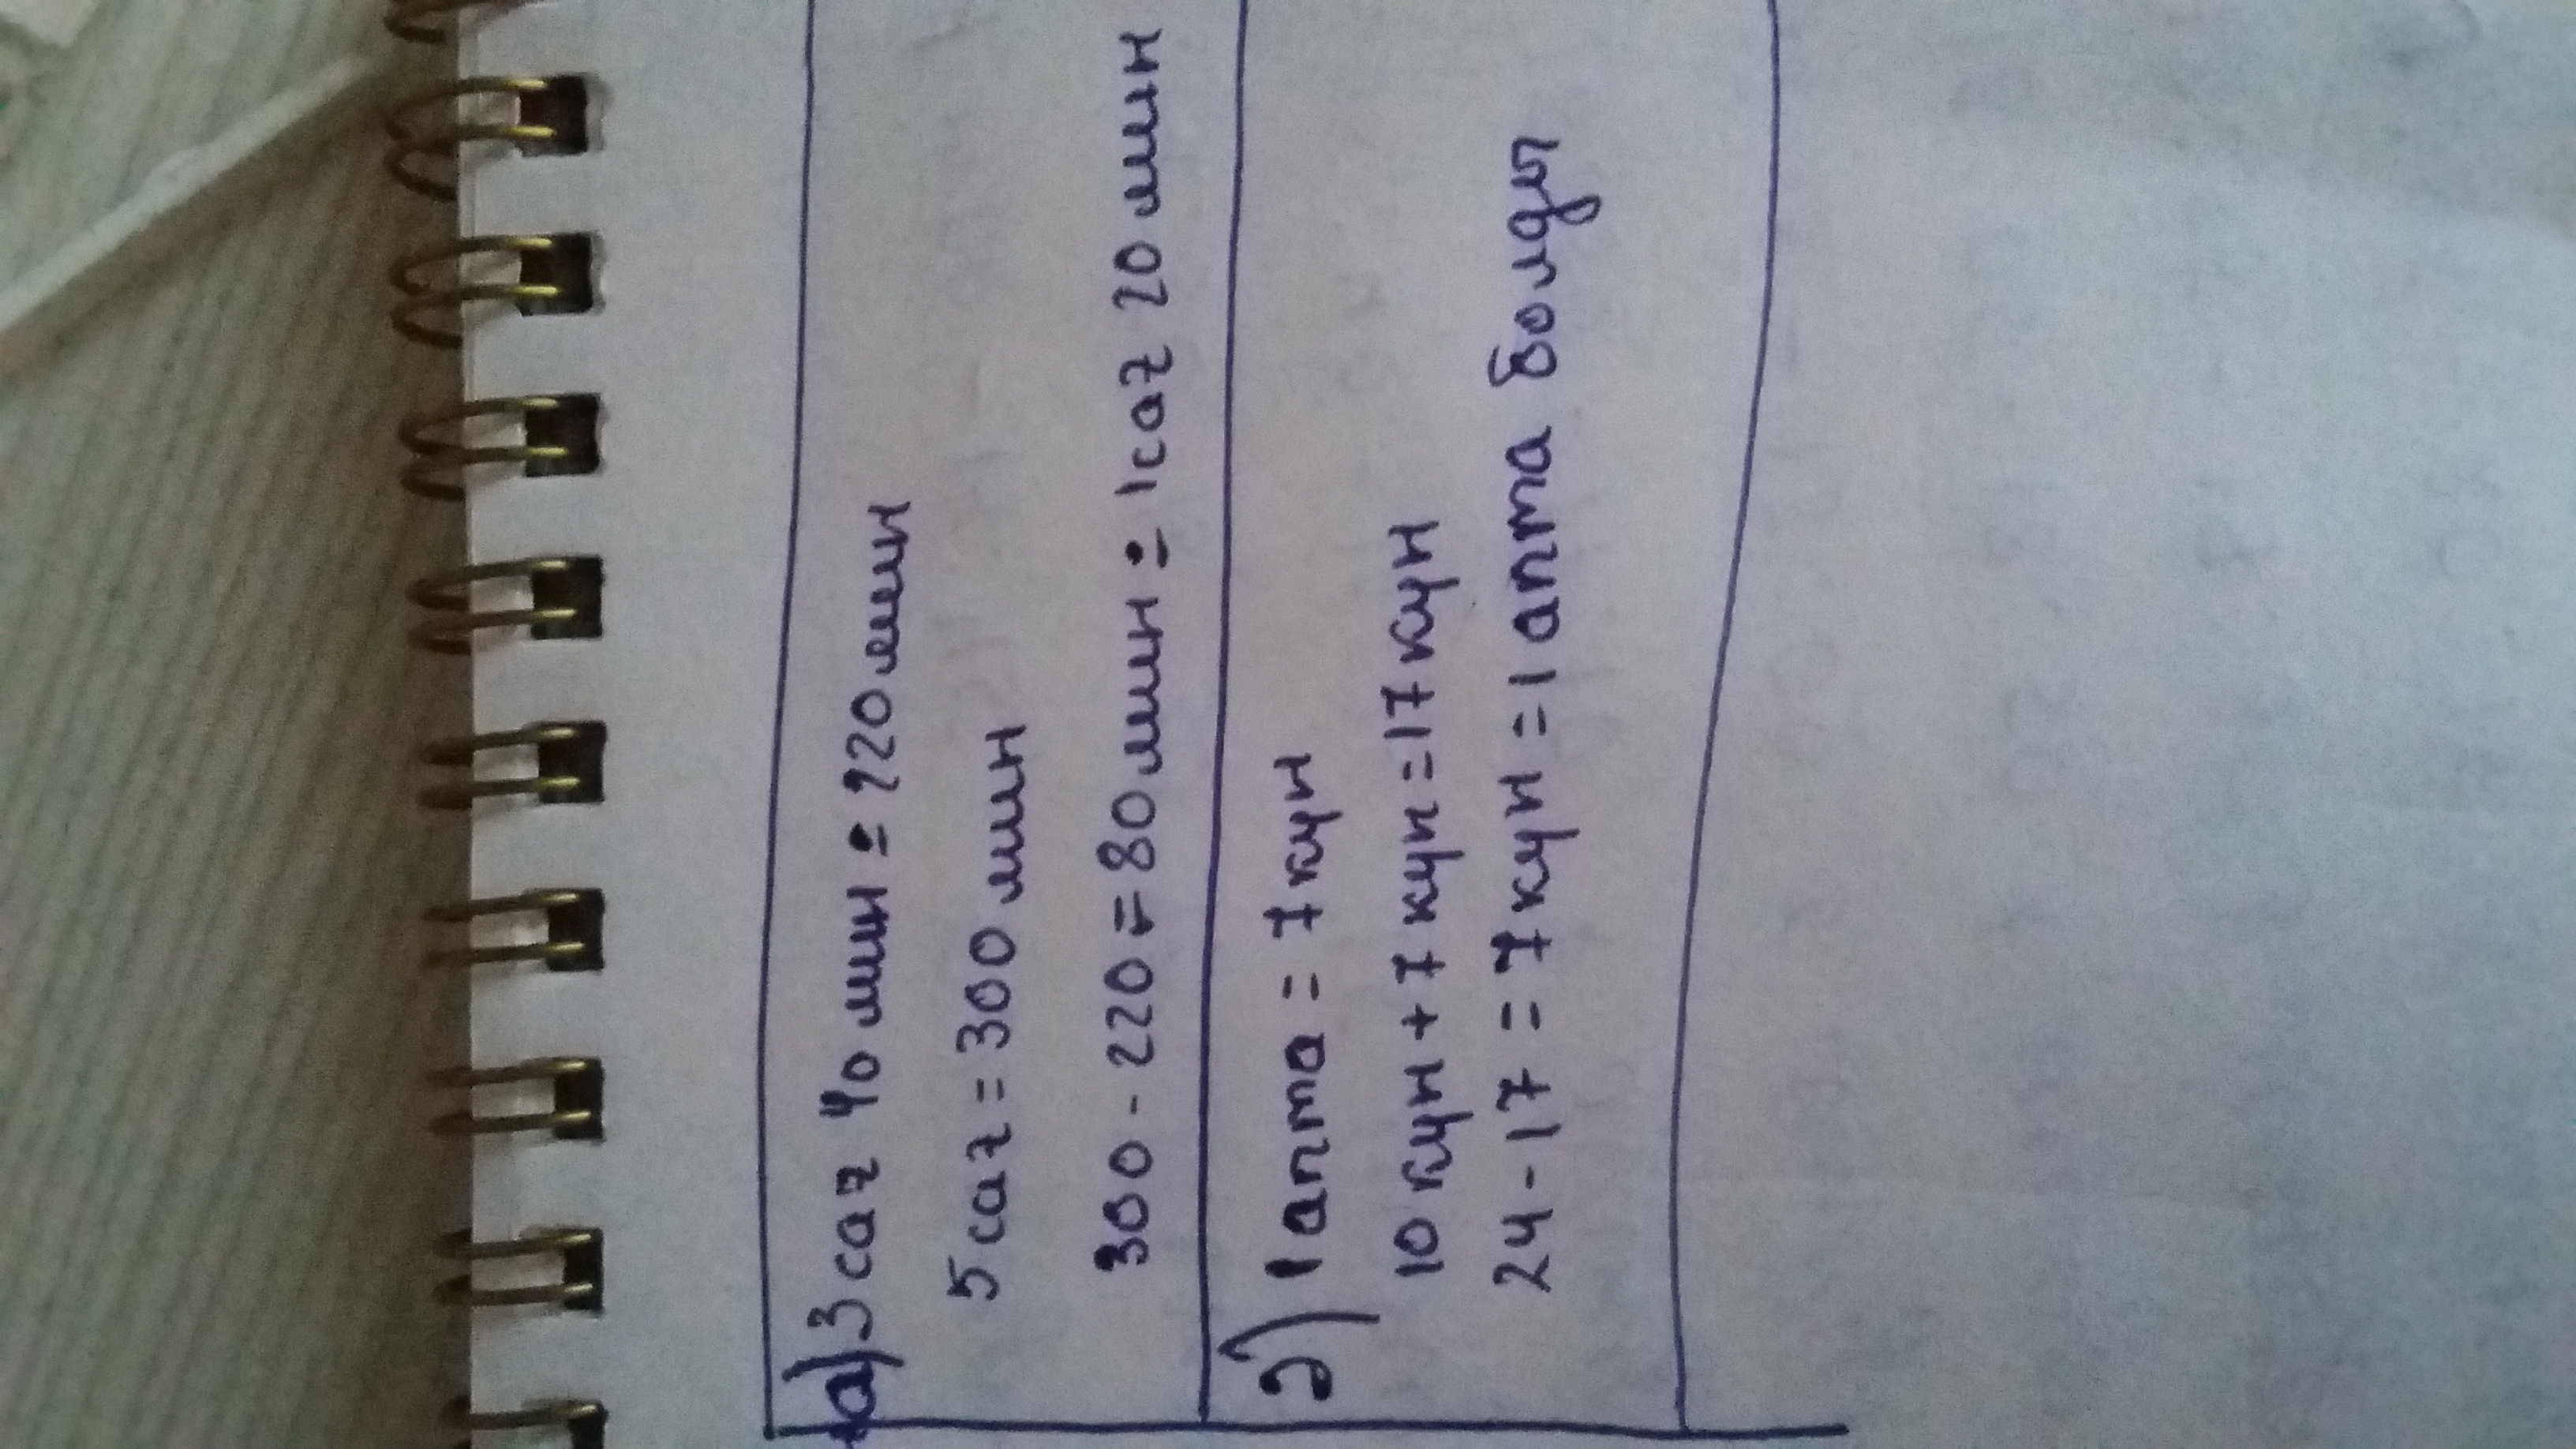 а) 3 саг 40 мин = 220 мин
5 саг = 300 мин
300 - 220 = 80 мин = 1 саг 20 мин
д) 1 апта = 7 кун
10 кун + 7 кун = 17 кун
24 - 17 = 7 кун = 1 апта болды